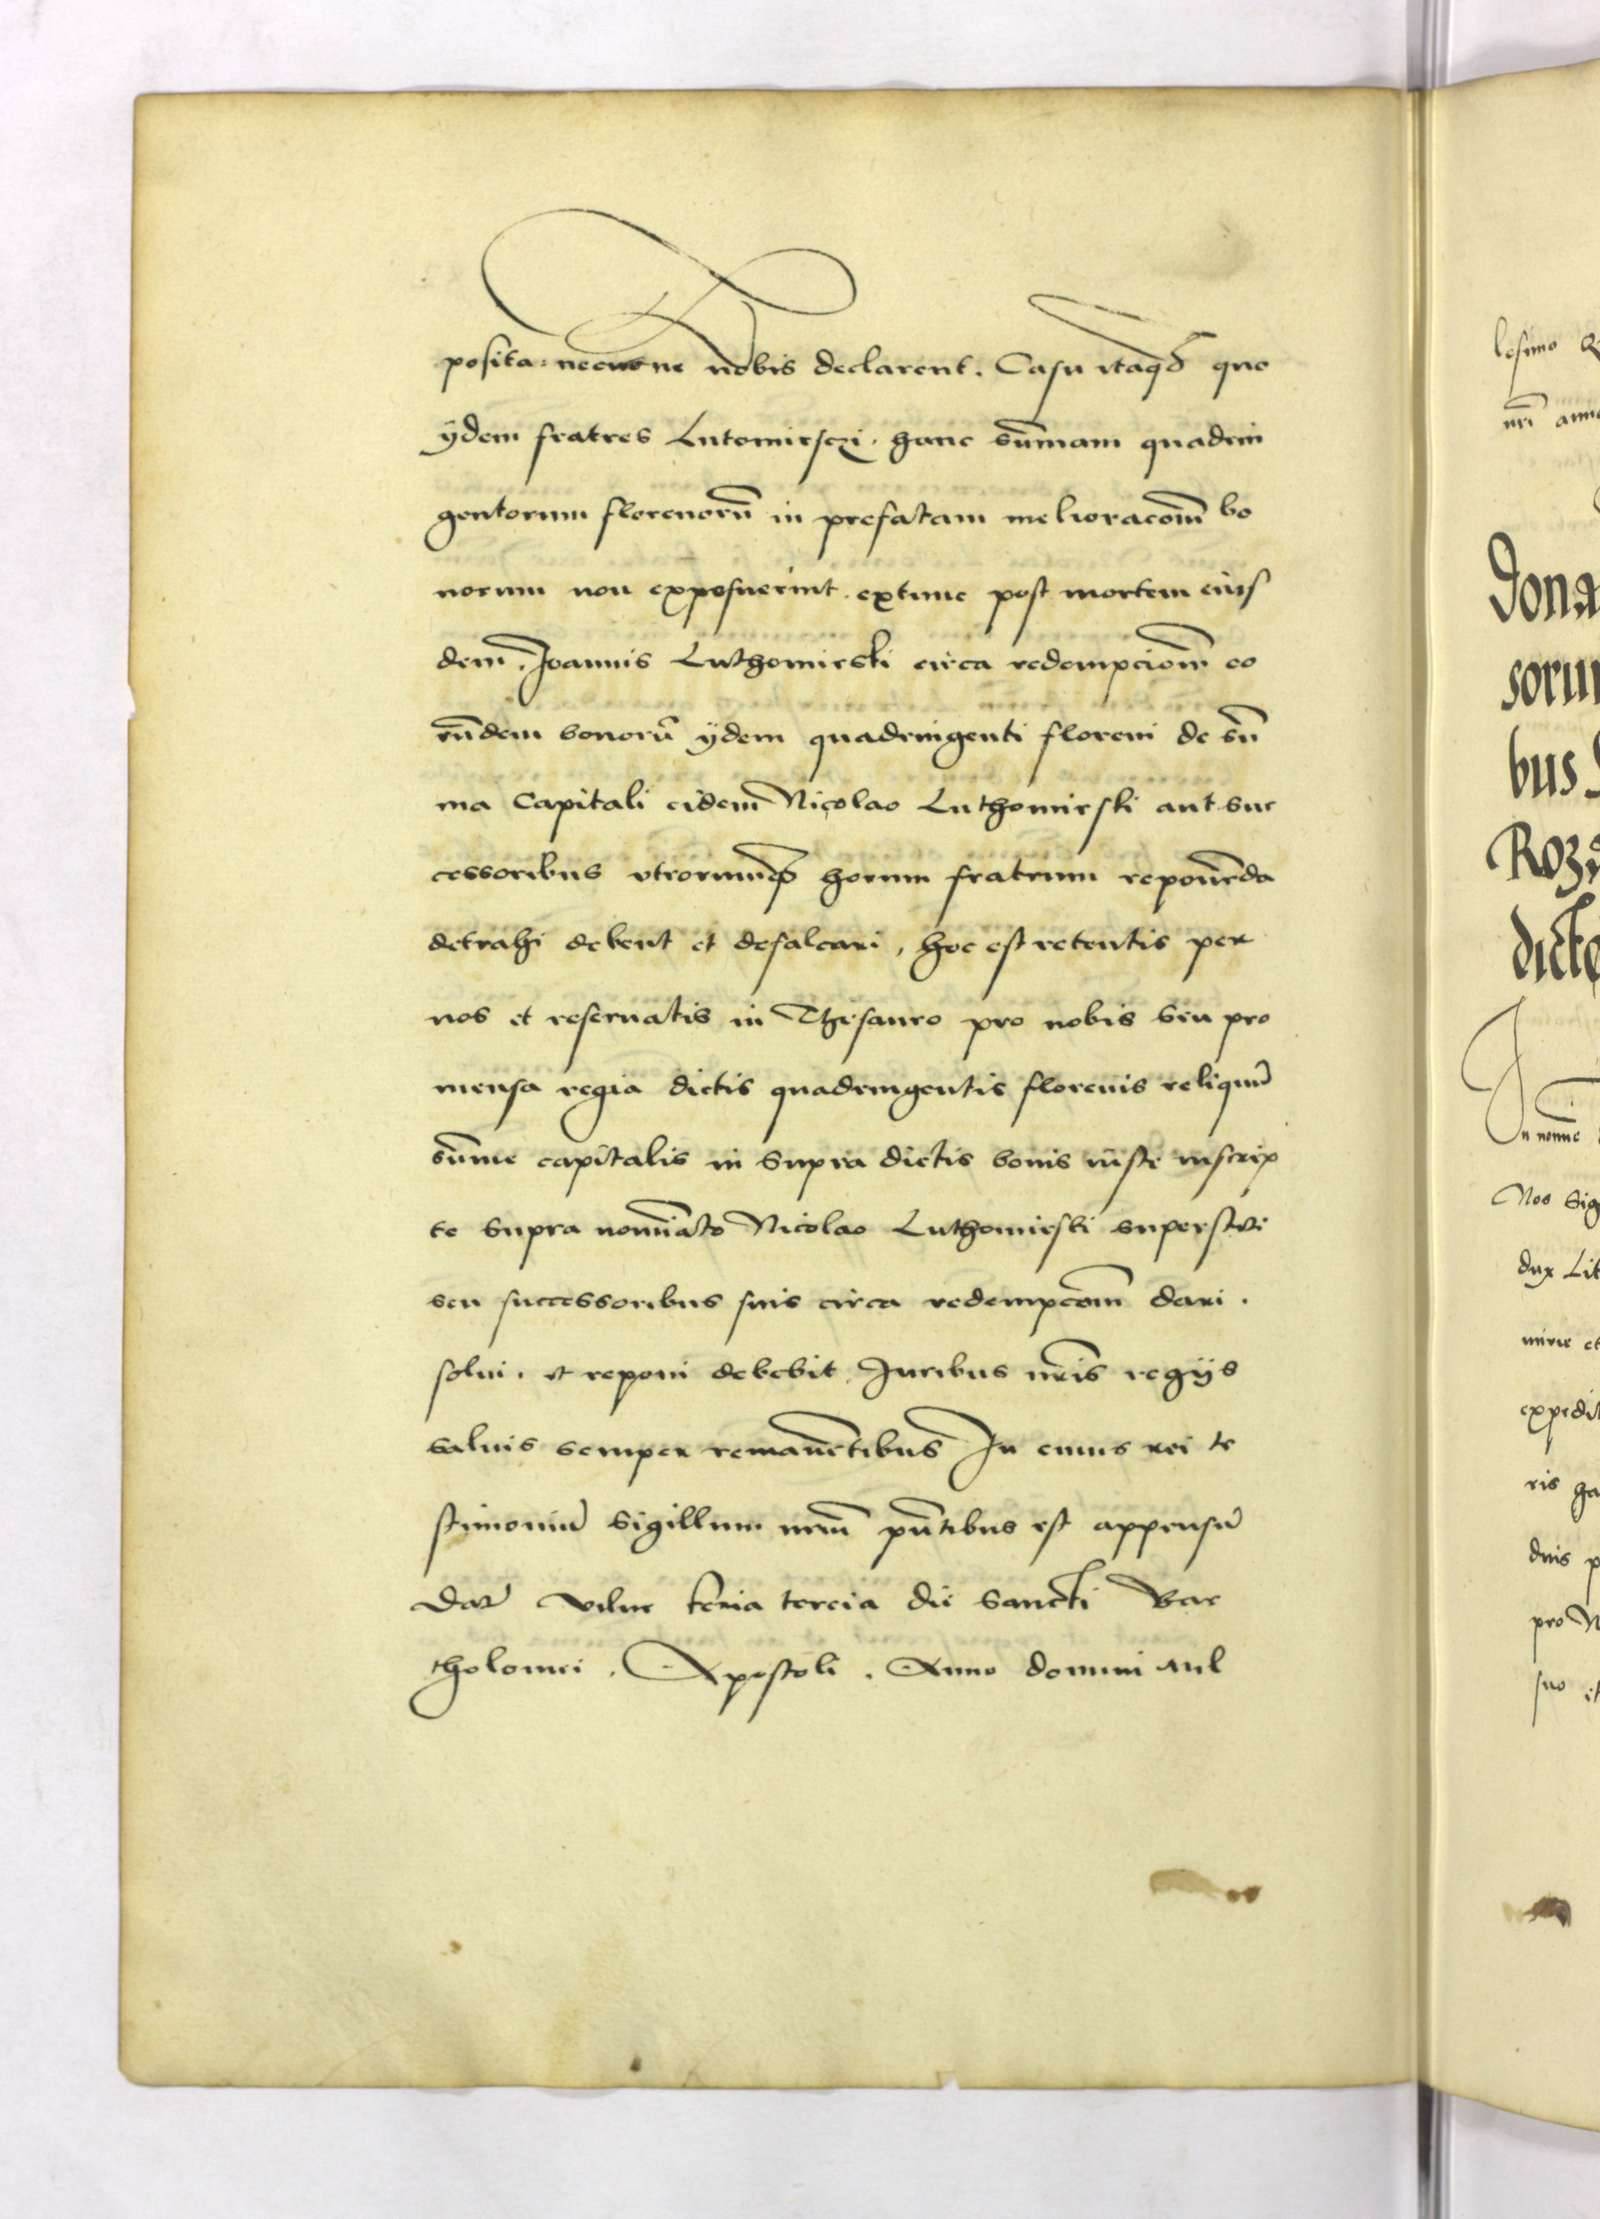 posita: necne nobis declarent. Casu itaq quo
ÿdem fratres Lutomirsczi. hanc sūmam quadrin
gentorum florenorū in prefatam melioracōm bo
norum non exposuerint. extunc post mortem eius
dem. Joannis Luthomirski circa redempcionē eo
rūdem bonorū ÿdem quadringenti floreni de sū
ma Capitali eidem Nicolao Luthomirski aut suc
cessoribus vtrorumq horum fratrum reponēda
detrahi debent et defalcari, hoc est retentis per
nos et reseruatis in Thesauro pro nobis seu pro
mensa regia dictis quadringentis florenis reliquū
sūme capitalis in supra dictis bonis iuste inscrip
te supra nomīato Nicolao Luthomirski superstiti
seu successoribus suis circa redempcōm dari.
solui. et reponi debebit. Juribus nrīs regÿs
saluis semper remanētibus In cuius rei te
stimoniū sigillum nrm̄ pn̄tibus est appensū
Datū Vilne feria tercia die Sancti Bar
tholomei. Apostoli. Anno domini Mil
lesimo
nri anno
Dona
sorum
bus
Roz
dicto
In nomine
Nos Sig
dux Lit
expedit
ris ga
dnis p
pro N
suo it